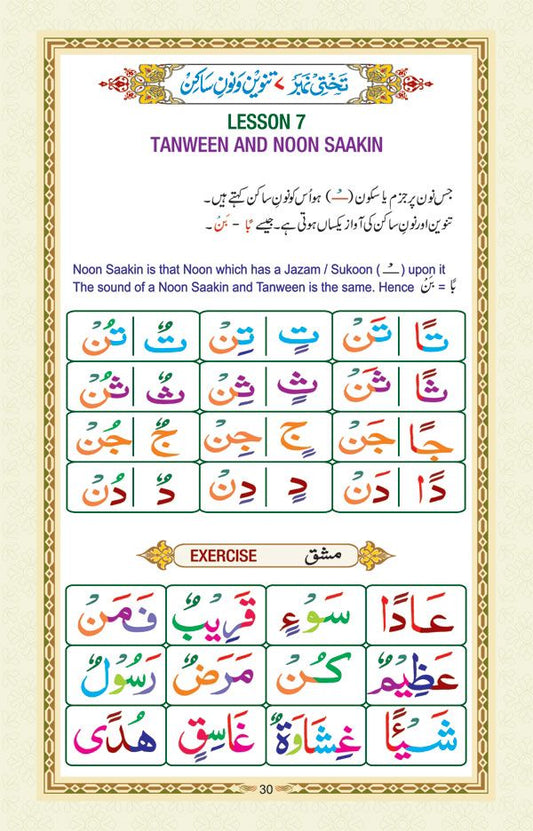 تختی نمبر ۷ تنوین و نونِ ساکن
LESSON 7
TANWEEN AND NOON SAAKIN
جس نون پر جزم یا سکون (ـْـ) ہو اُس کو نونِ ساکن کہتے ہیں۔
تنوین اور نونِ ساکن کی آواز یکساں ہوتی ہے۔ جیسے بًا - بَنْ۔
Noon Saakin is that Noon which has a Jazam / Sukoon (ـْـ) upon it
The sound of a Noon Saakin and Tanween is the same. Hence بَنْ = بًا
تًا تَنْ تٍ تِنْ تٌ تُنْ
ثًا ثَنْ ثٍ ثِنْ ثٌ ثُنْ
جًا جَنْ جٍ جِنْ جٌ جُنْ
دًا دَنْ دٍ دِنْ دٌ دُنْ
EXERCISE مشق
عَادًا سَوْءٍ قَرِيْبٌ فَمَنْ
عَظِيْمٌ كُنْ مَرَضٌ رَسُوْلٌ
شَيْـًٔا غِشَاوَةٌ غَاسِقٍ هُدًى
30